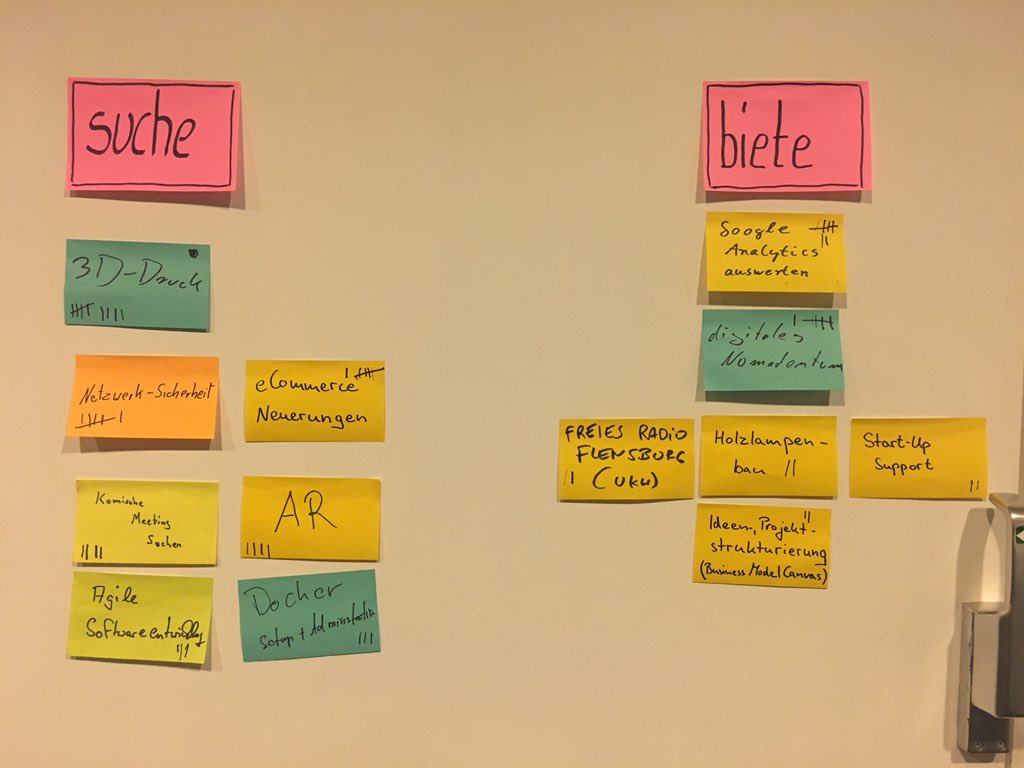 suche
3D-Druck
Netzwerk-Sicherheit
eCommerce
Neuerungen
Komische
Meeting
Sachen
AR
Agile
Softwareentwicklung
Docker
Setup + Administration
biete
Google
Analytics
auswerten
digitales
Nomadentum
FREIES RADIO
FLENSBURG
(UKW)
Holzlampen-
bau
Start-Up
Support
Ideen-, Projekt-
strukturierung
(Business Model Canvas)